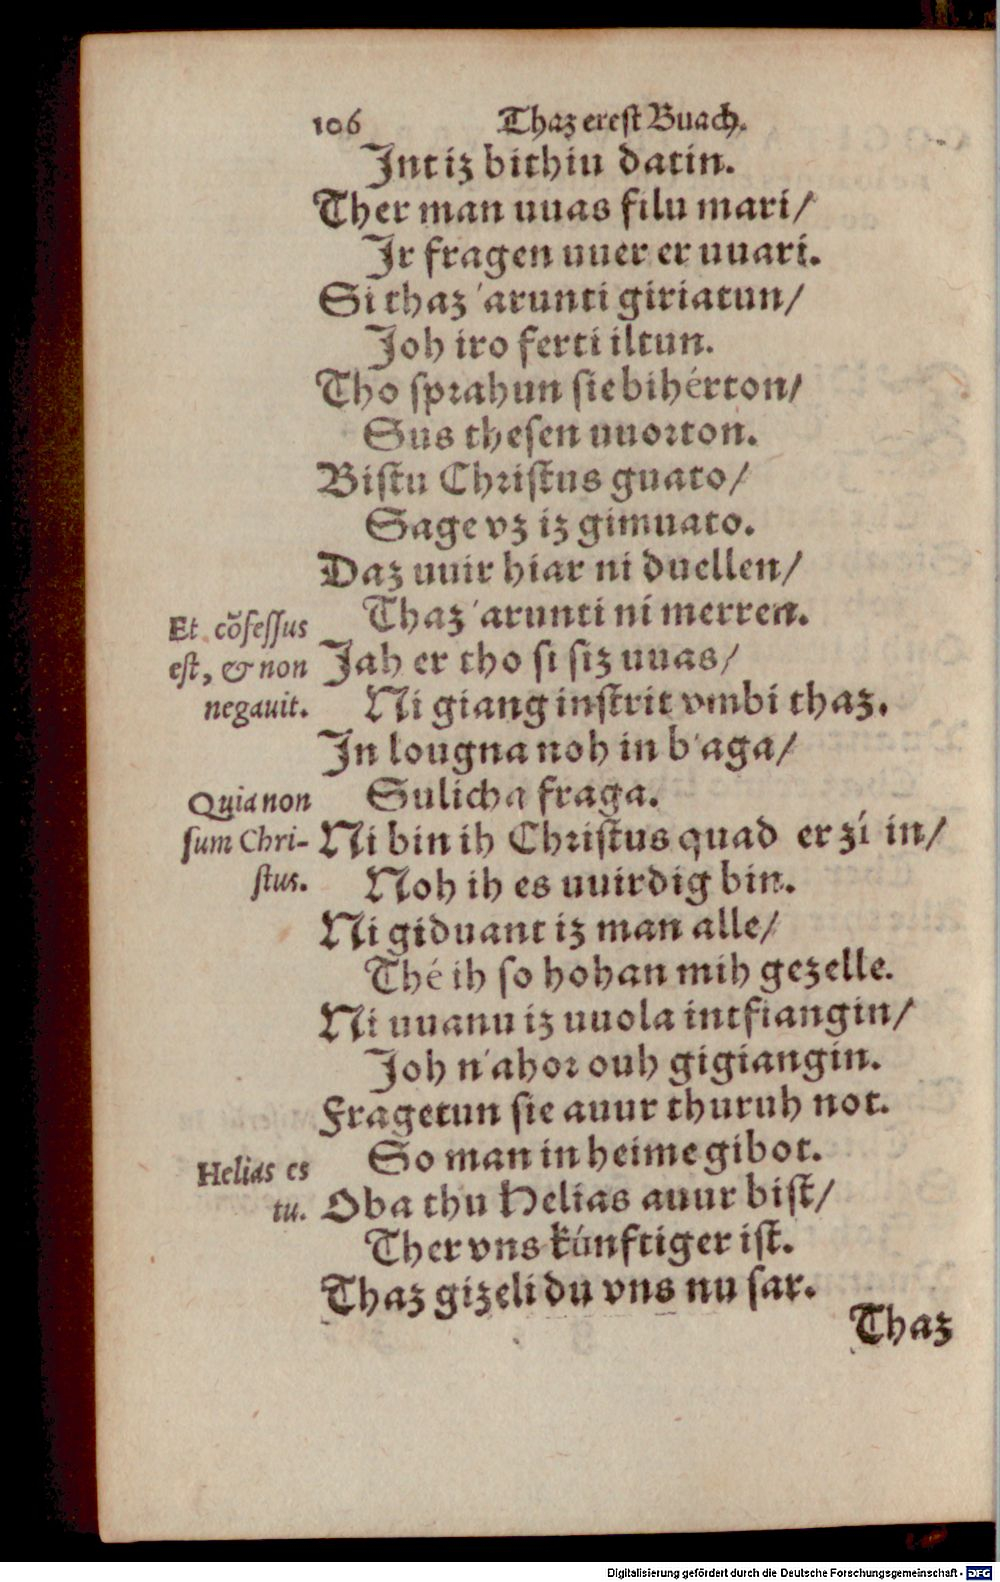 106 Thaz ereſt Buach.
Jnt iz bithiu datin.
Ther man uuas filu mari/
Jr fragen uuer er uuari.
Si thaz 'arunti giriatun/
Joh iro ferti iltun.
Tho ſprahun ſie bihérton/
Sus theſen uuorton.
Biſtu Chriſtus guato/
Sage vz iz gimuato.
Daz uuir hiar ni duellen/
Thaz 'arunti ni merren.
Et cõfeſſus
eſt, & non
negauit.
Jah er tho ſi ſiz uuas/
Ni giang inſtrit vmbi thaz.
Jn lougna noh in b'aga/
Sulicha fraga.
Quia non
ſum Chri-
ſtus.
Ni bin ih Chriſtus quad er zí in/
Noh ih es uuirdig bin.
Ni giduant iz man alle/
Thé ih ſo hohan mih gezelle.
Ni uuanu iz uuola intfiangin/
Joh n'ahor ouh gigiangin.
Fragetun ſie auur thuruh not.
So man in heime gibot.
Helias es
tu.
Oba thu Helias auur biſt/
Ther vns künftiger iſt.
Thaz gizeli du vns nu ſar.
Thaz
Digitalisierung gefördert durch die Deutsche Forschungsgemeinschaft - DFG